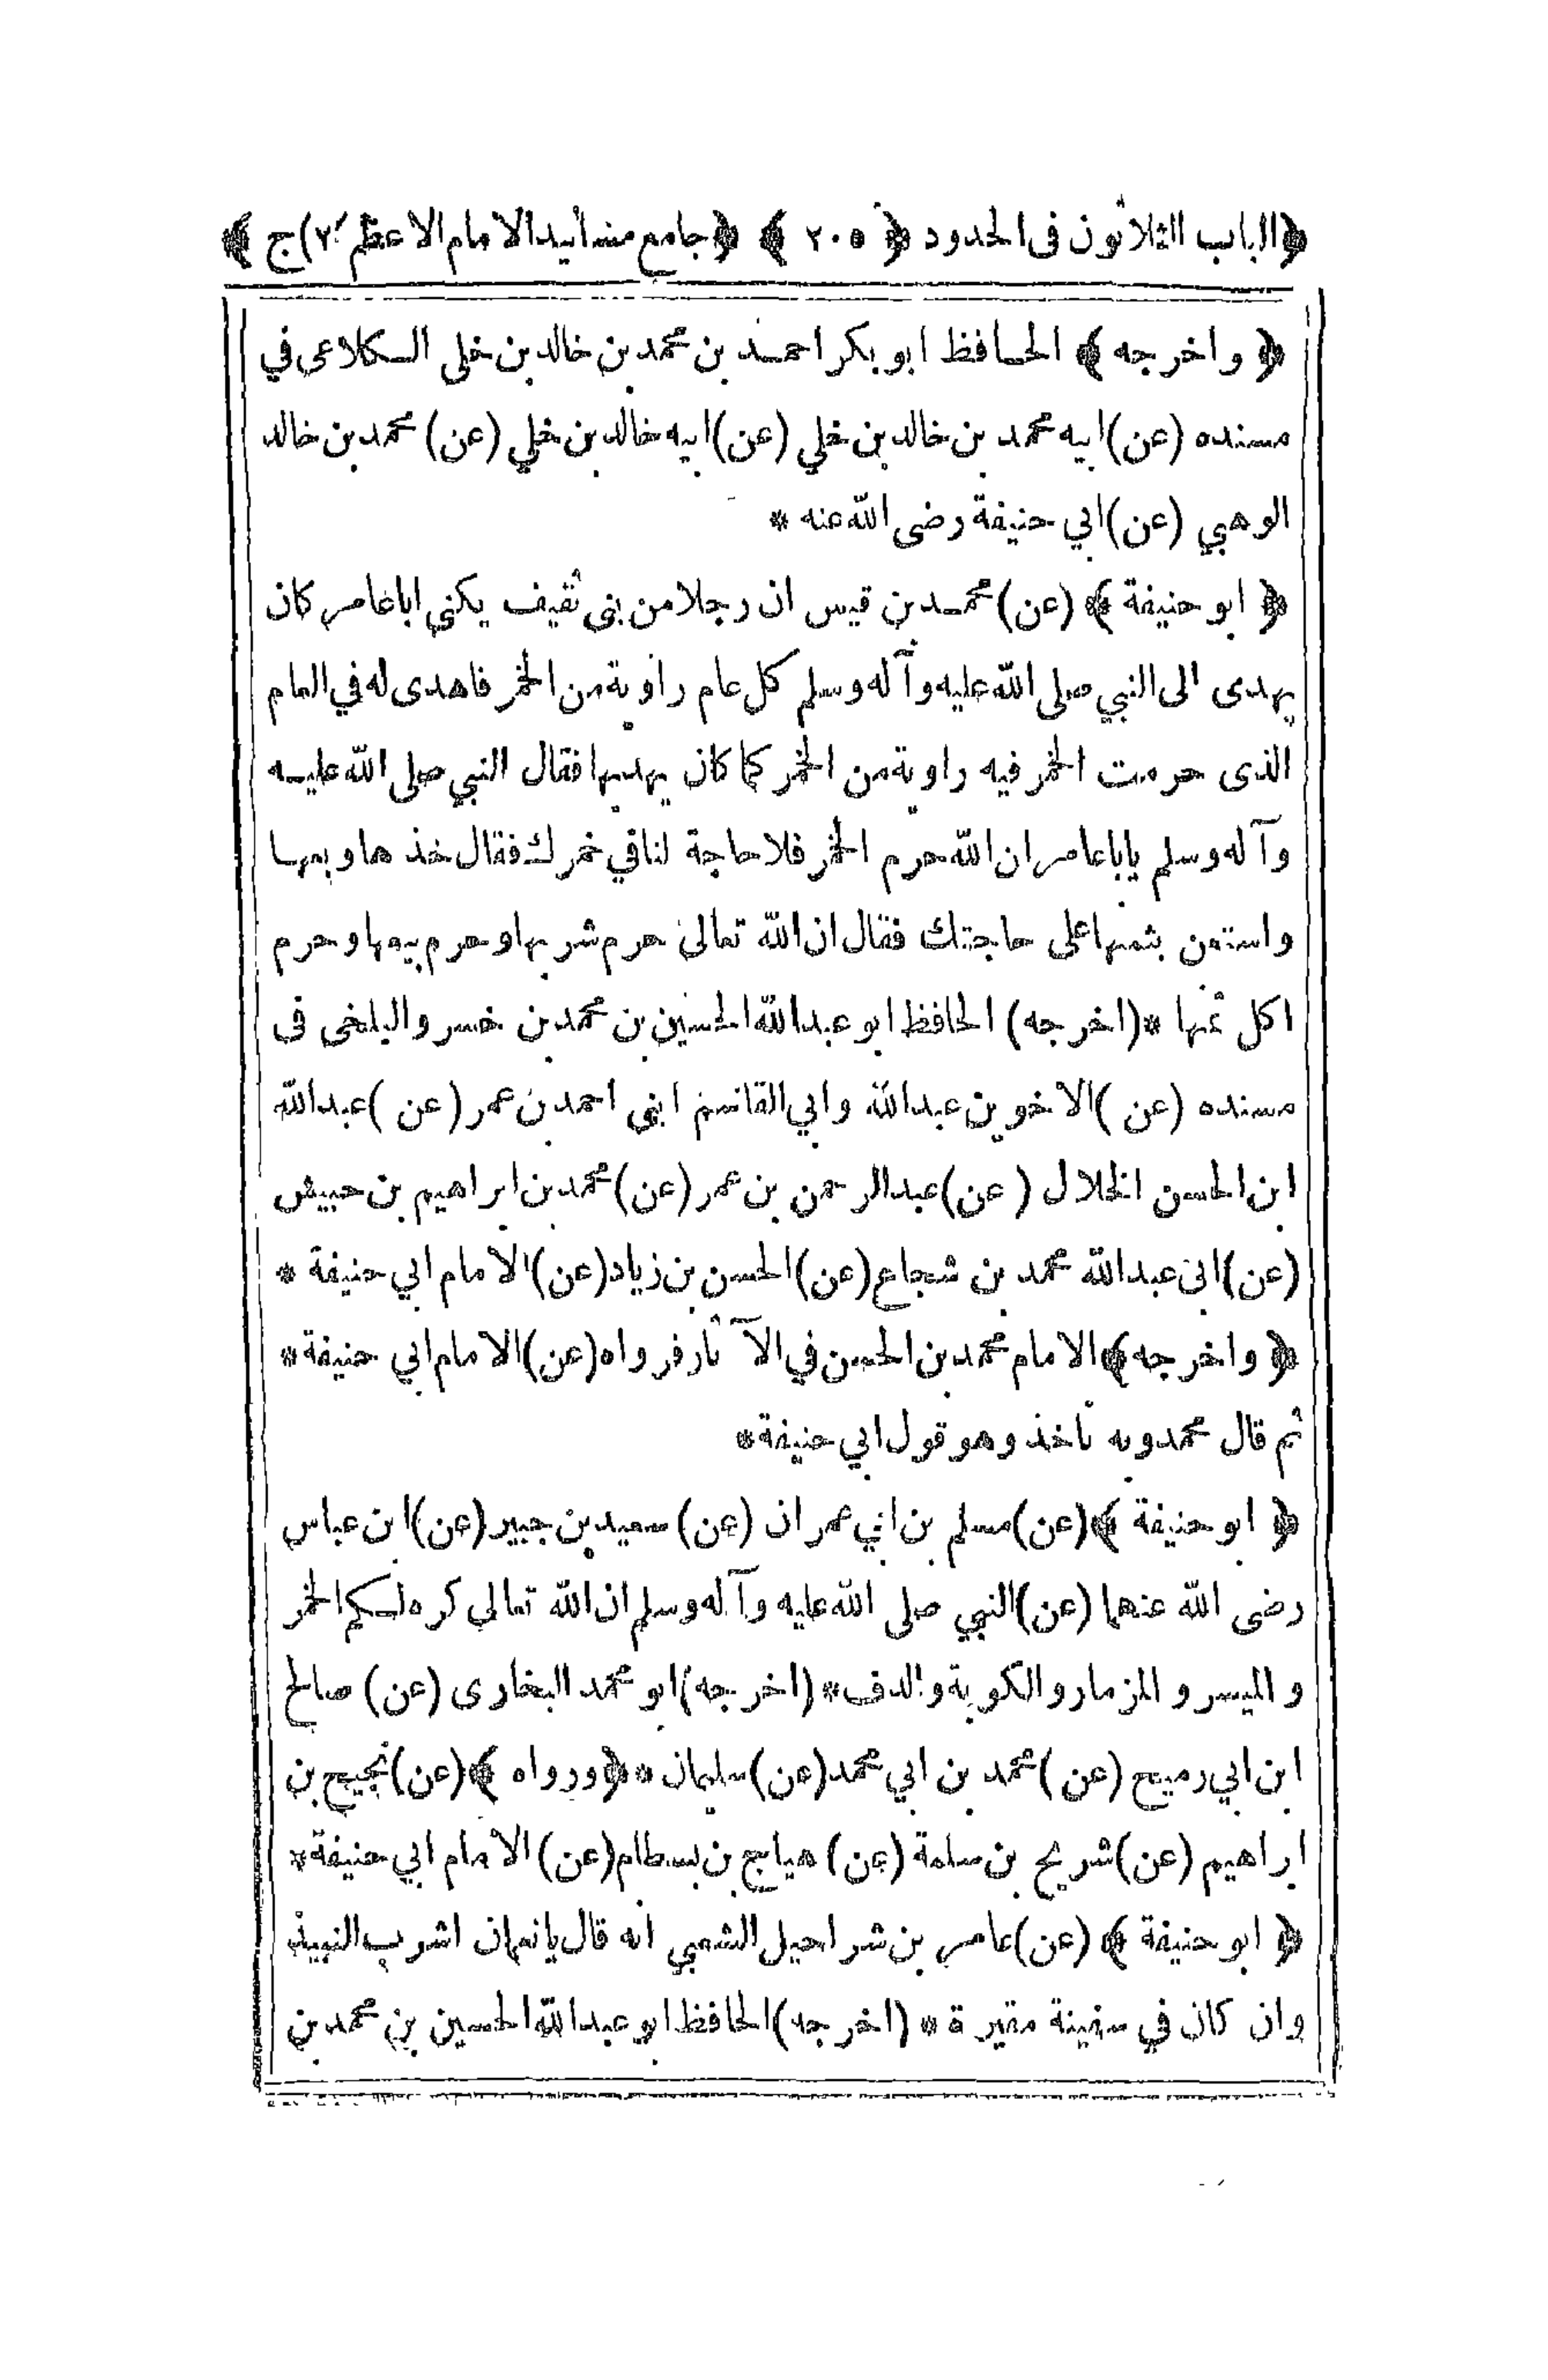 ﴿الباب الثلاثون فى الحدود ﴾ ﴿ ٢٠٥ ﴾ ﴿جامع مسانيد الامام الاعظم (٢) ج ﴾
﴿ واخرجه ﴾ الحافظ ابو بكر احمد بن محمد بن خالد بن خلى الكلاعى في
مسنده (عن) ابيه محمد بن خالد بن خلي (عن) ابيه خالد بن خلي (عن) محمد بن خالد
الوهبي (عن) ابي حنيفة رضى الله عنه *
﴿ ابو حنيفة ﴾ (عن) محمد بن قيس ان رجلا من بنى ثقيف يكنى اباعامر كان
يهدى الى النبي صلى الله عليه وآله وسلم كل عام راوية من الخمر فاهدى له في العام
الذى حرمت الخمر فيه راوية من الخمر كما كان يهديها فقال النبي صلى الله عليه
وآله وسلم ياباعامر ان الله حرم الخمر فلا حاجة لنا في خمرك فقال خذها وبعها
واستعن بثمنها على حاجتك فقال ان الله تعالى حرم شربها وحرم بيعها وحرم
اكل ثمنها * (اخرجه) الحافظ ابو عبدالله الحسين بن محمد بن خسرو البلخى فى
مسنده (عن) الاخوين عبدالله وابي القاسم ابنى احمد بن عمر (عن) عبدالله
ابن الحسن الخلال (عن) عبدالرحمن بن عمر (عن) محمد بن ابراهيم بن حبيش
(عن) ابى عبدالله محمد بن شجاع (عن) الحسن بن زياد (عن) الامام ابي حنيفة *
﴿ واخرجه ﴾ الامام محمد بن الحسن في الآثار فرواه (عن) الامام ابي حنيفة *
ثم قال محمد وبه ناخذ وهو قول ابي حنيفة *
﴿ ابو حنيفة ﴾ (عن) مسلم بن ابي عمران (عن) سعيد بن جبير (عن) ابن عباس
رضى الله عنهما (عن) النبي صلى الله عليه وآله وسلم ان الله تعالى كره لكم الخمر
والميسر والمزمار والكوبة والدف * (اخرجه) ابو محمد البخارى (عن) صالح
ابن ابي رميح (عن) محمد بن ابي محمد (عن) سليمان * ﴿ ورواه ﴾ (عن) نجيح بن
ابراهيم (عن) شريح بن سلمة (عن) هياج بن بسطام (عن) الامام ابي حنيفة *
﴿ ابو حنيفة ﴾ (عن) عامر بن شراحيل الشعبي انه قال يا نعمان اشرب النبيذ
وان كان في سفينة مقيرة * (اخرجه) الحافظ ابو عبدالله الحسين بن محمد بن